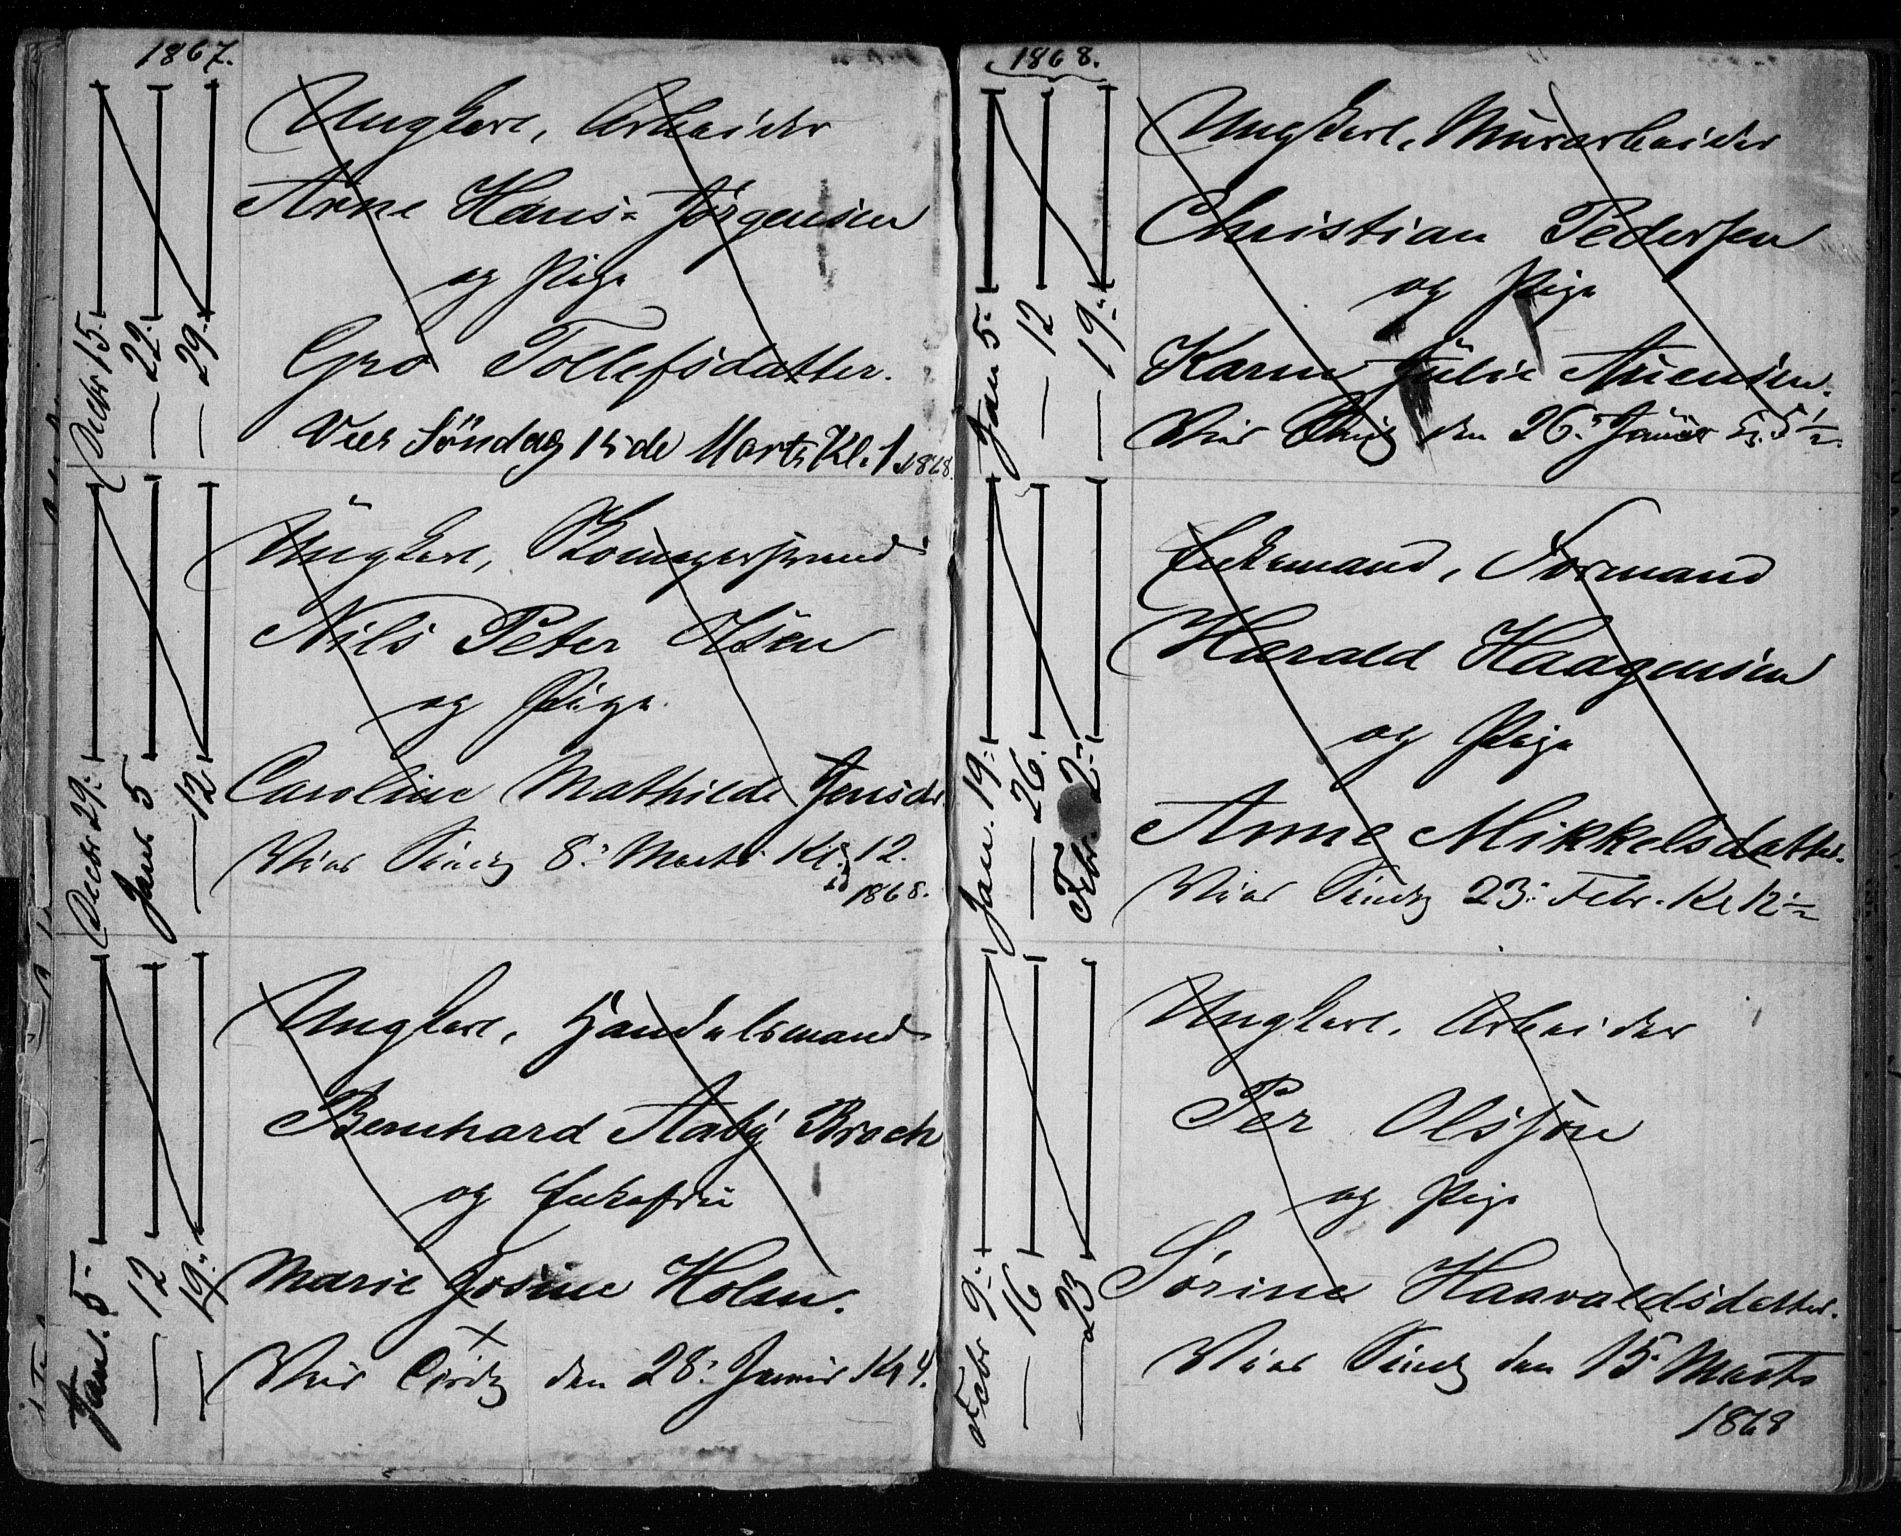 1867.
Decbr 15.
— 22.
— 29.
Ungkarl, Arbeider
Arne Hans-Jørgensen
og Pige
Gro Tollefsdatter.
Vies Søndag 15de Marts Kl. 1 1868
Decbr 29.
Janr 5
— 12
Ungkarl, Skomagersvend
Nils Peter Olsen
og Pige
Caroline Mathilde Jensdr.
Vies Søndg 8: Marts Kl. 12.
1868.
Jan. 5
— 12
— 19
Ungkarl, Handelsmand
Bernhard Aaby Broch
og Enkefru
Marie Josine Holm.
Vies den 28: Januar Kl 4.
1868.
Jan 5
— 12
— 19
Ungkarl, Murarbeider
Christian Pedersen
og Pige
Karen Julie
Vies den 26. Januar 5½
Jan. 19
— 26
Febr. 2
Enkemand, Formand
Harald Haagensen
og Pige
Anne Mikkelsdatter.
Vies Søndg 23: Febr. Kl 12½
Febr 9
— 16
— 23
Ungkarl, Arbeider
Per Olsson
og Pige
Sørine Haavaldsdatter.
Vies Søndg den 15 Marts
1868